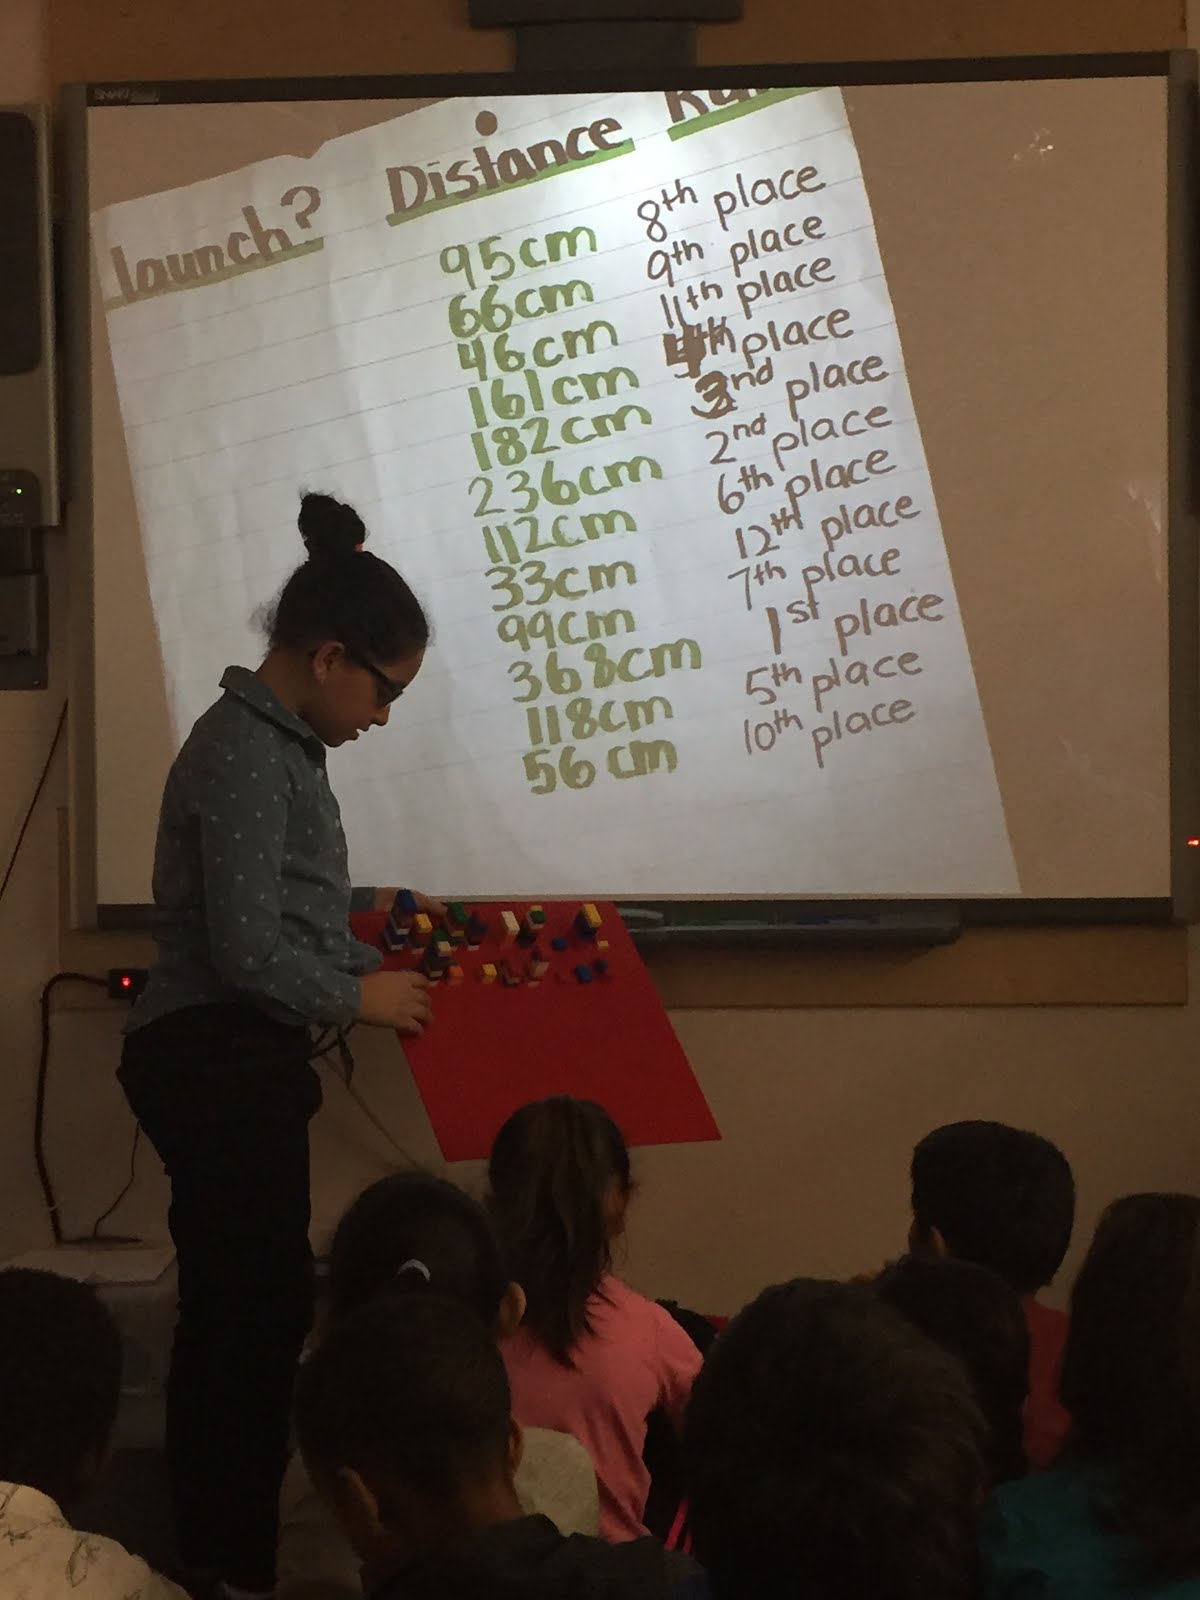 SMART
launch? Distance
95cm 8th place
66cm 9th place
46cm 11th place
161cm 4th place
182cm 3nd place
236cm 2nd place
112cm 6th place
33cm 12th place
99cm 7th place
368cm 1st place
118cm 5th place
56cm 10th place